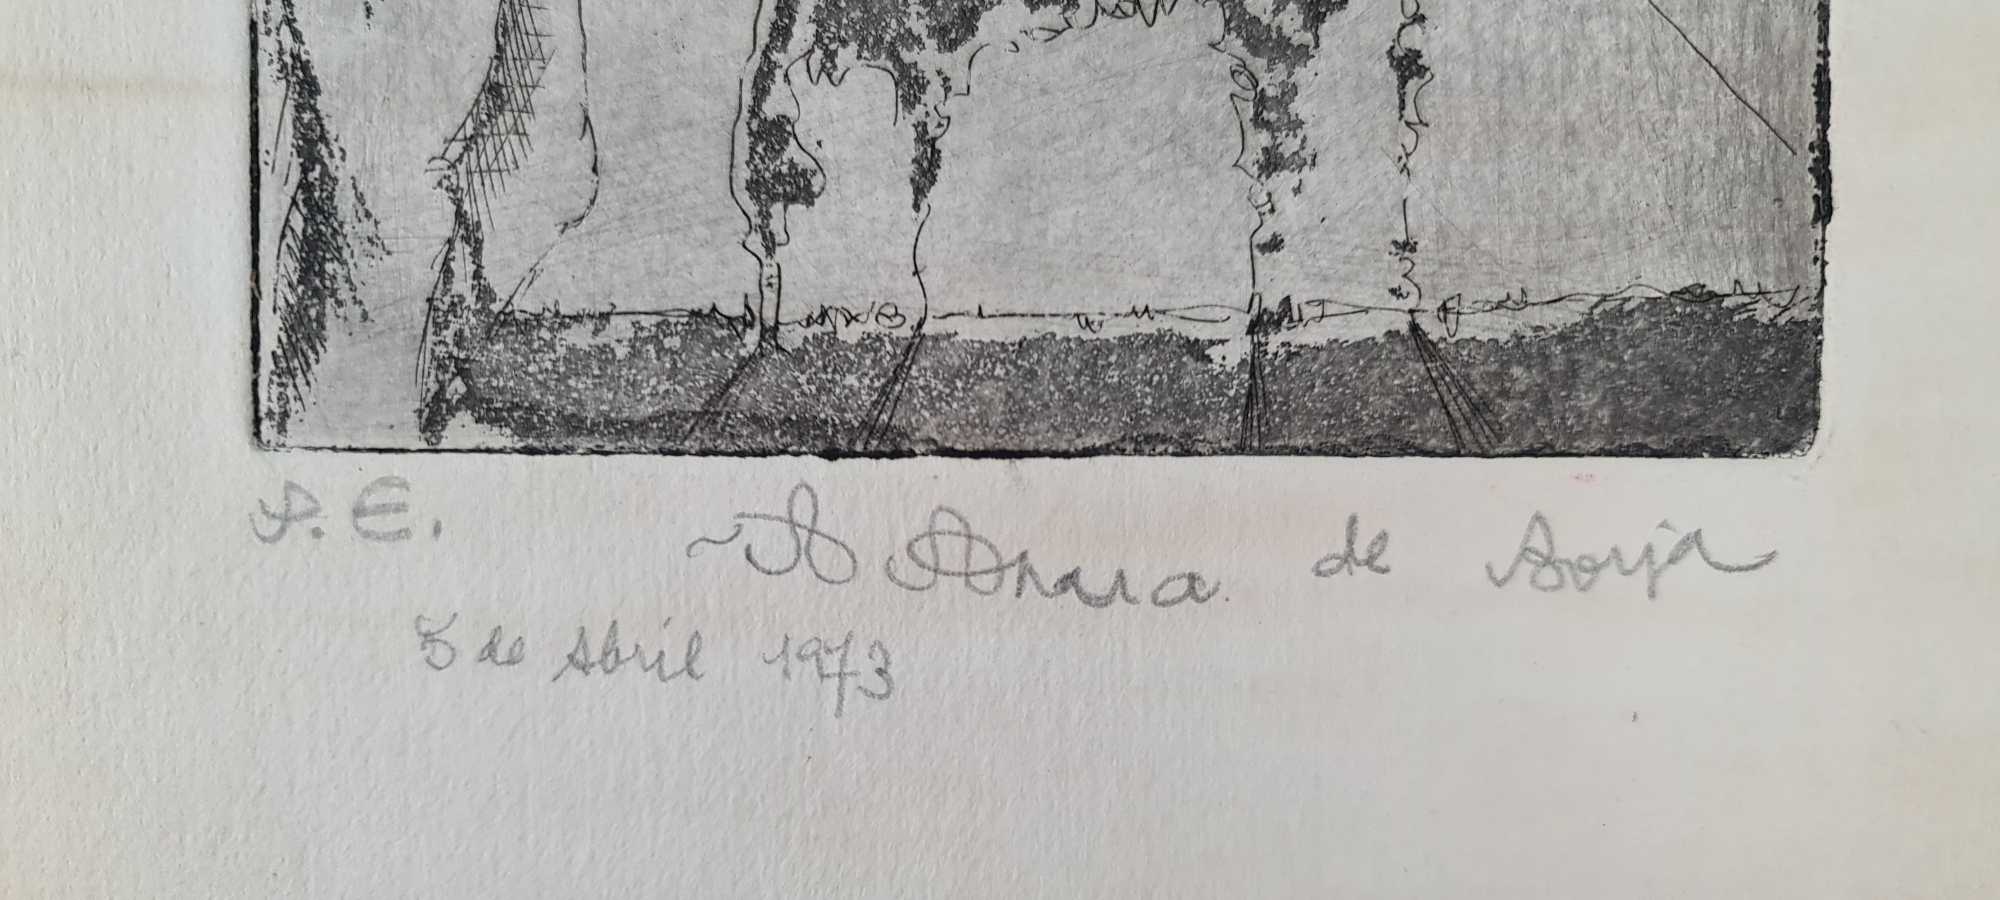 P. E. de Borja
5 de Abril 1973